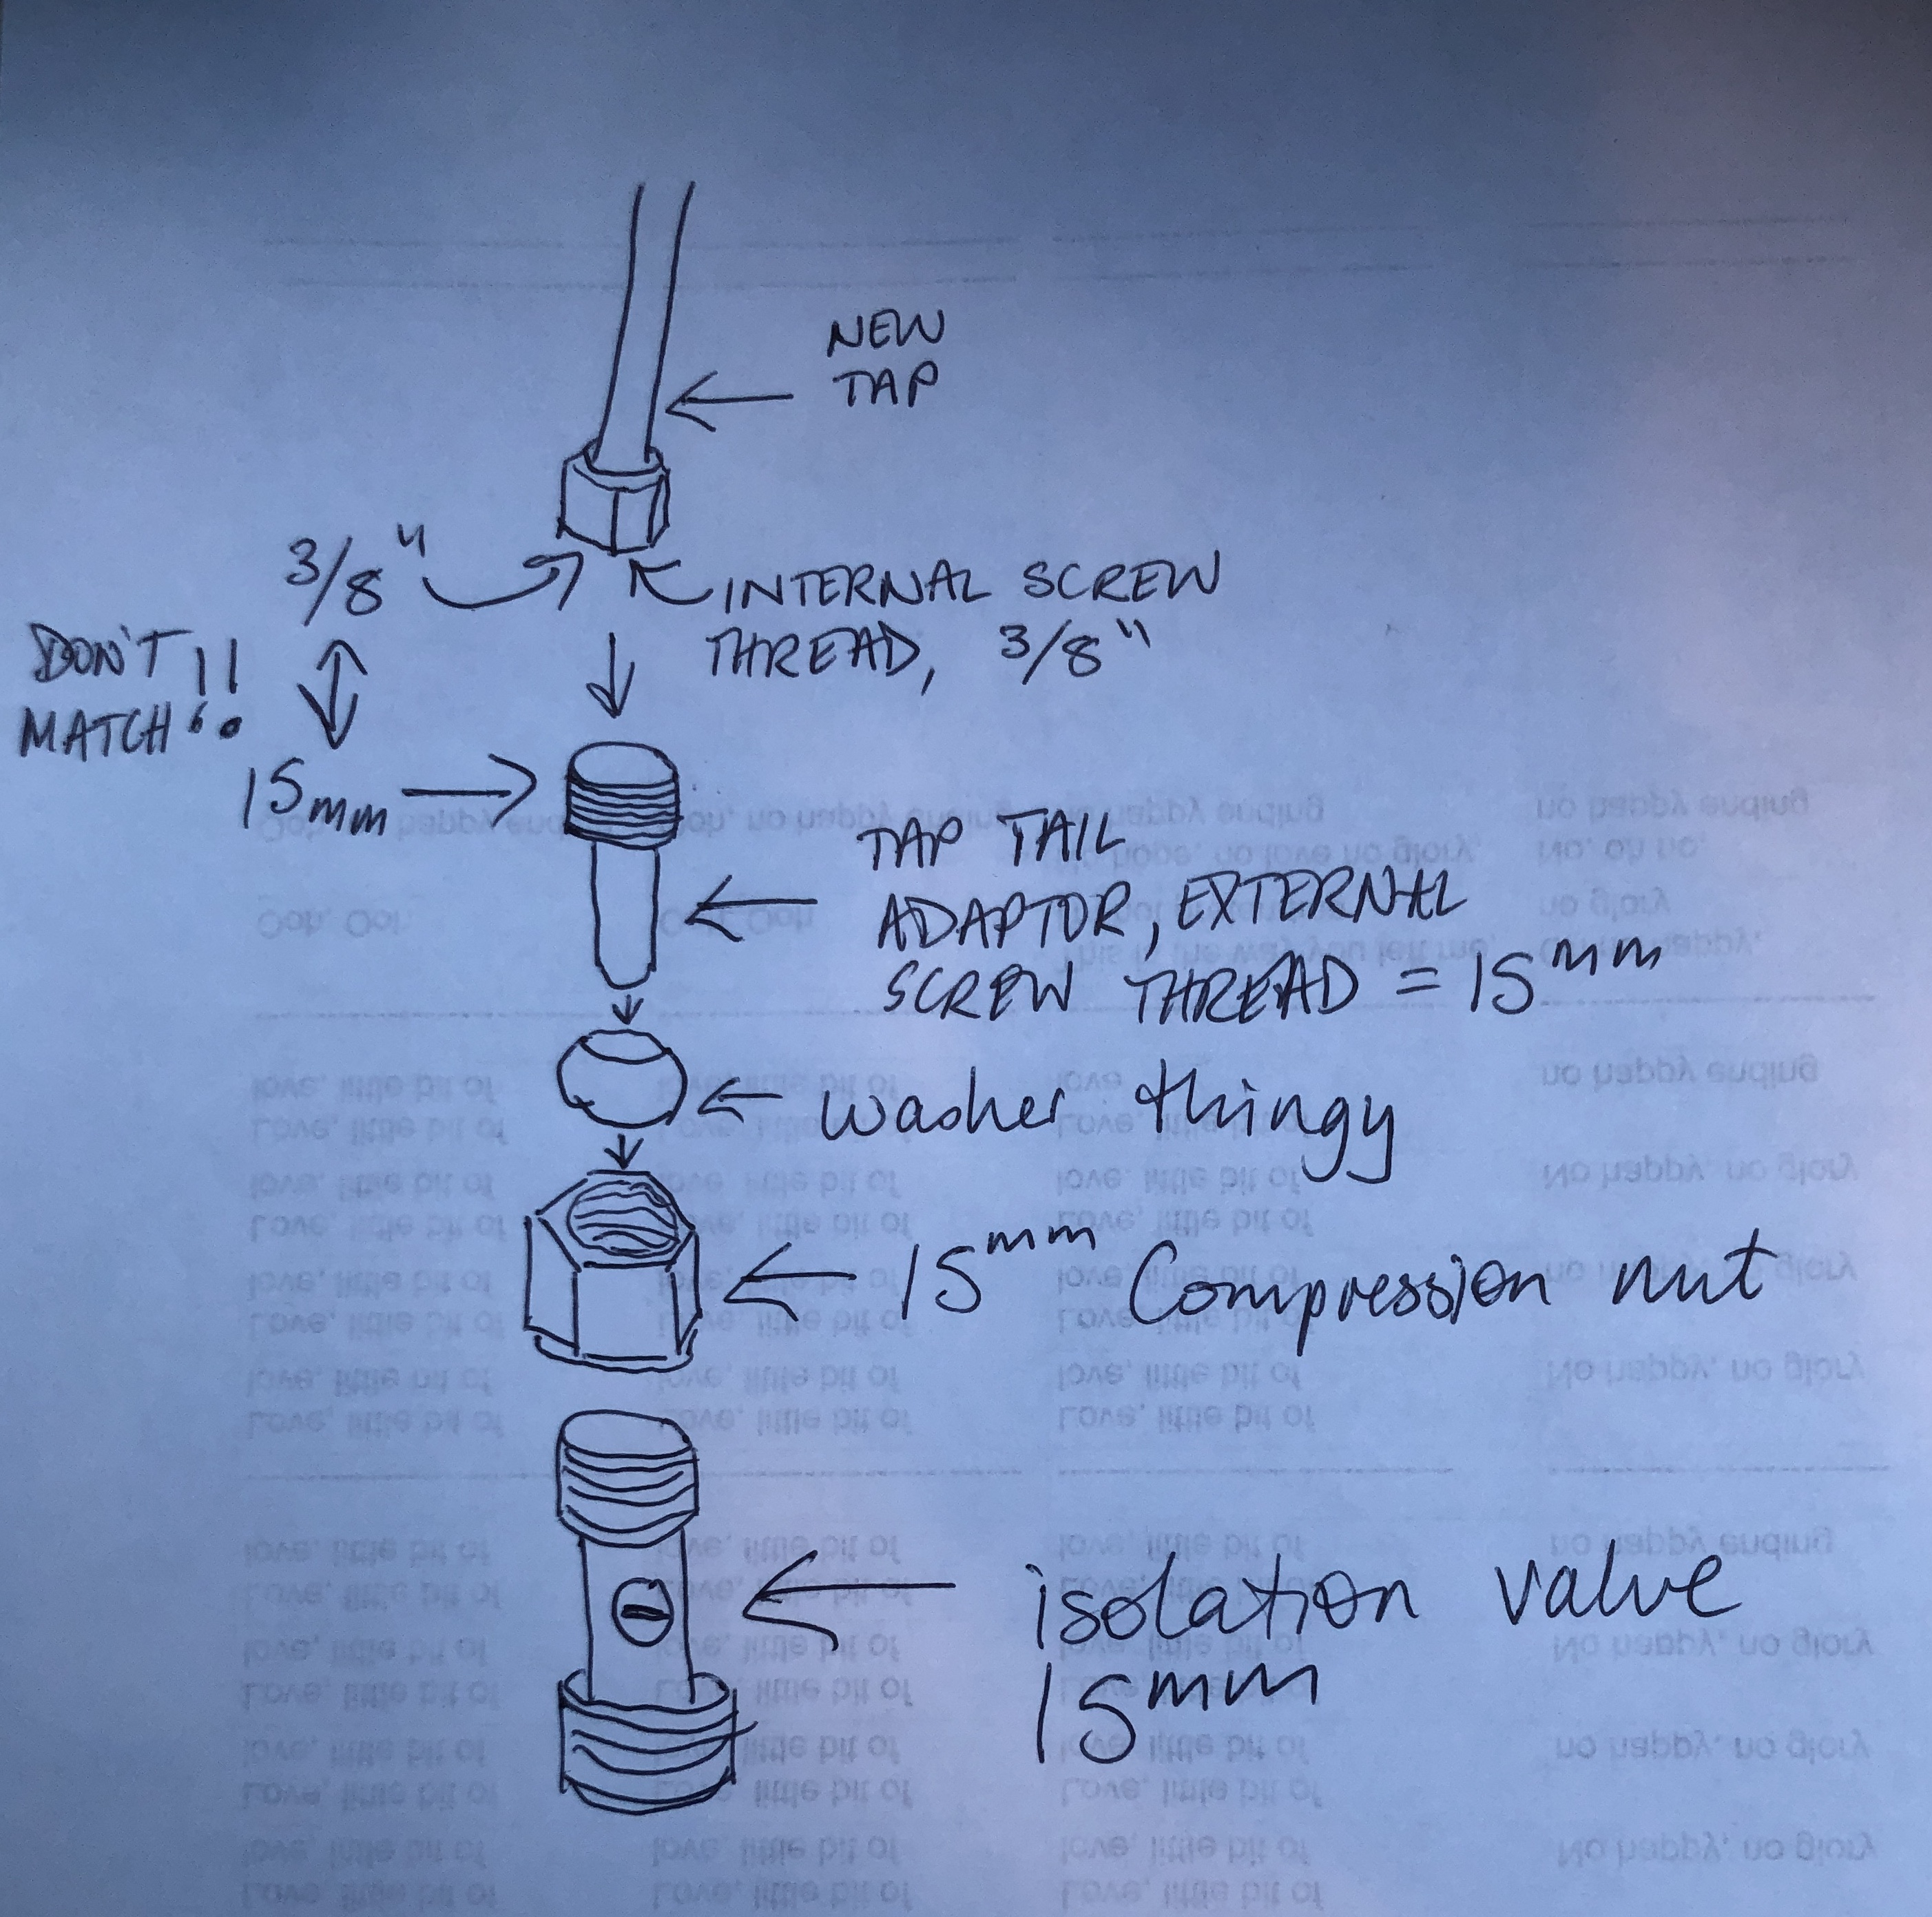 NEW
TAP
3/8"
INTERNAL SCREW
THREAD, 3/8"
DON'T
MATCH!!
15mm
TAP TAIL
ADAPTOR, EXTERNAL
SCREW THREAD = 15mm
washer thingy
15mm Compression nut
isolation valve
15mm